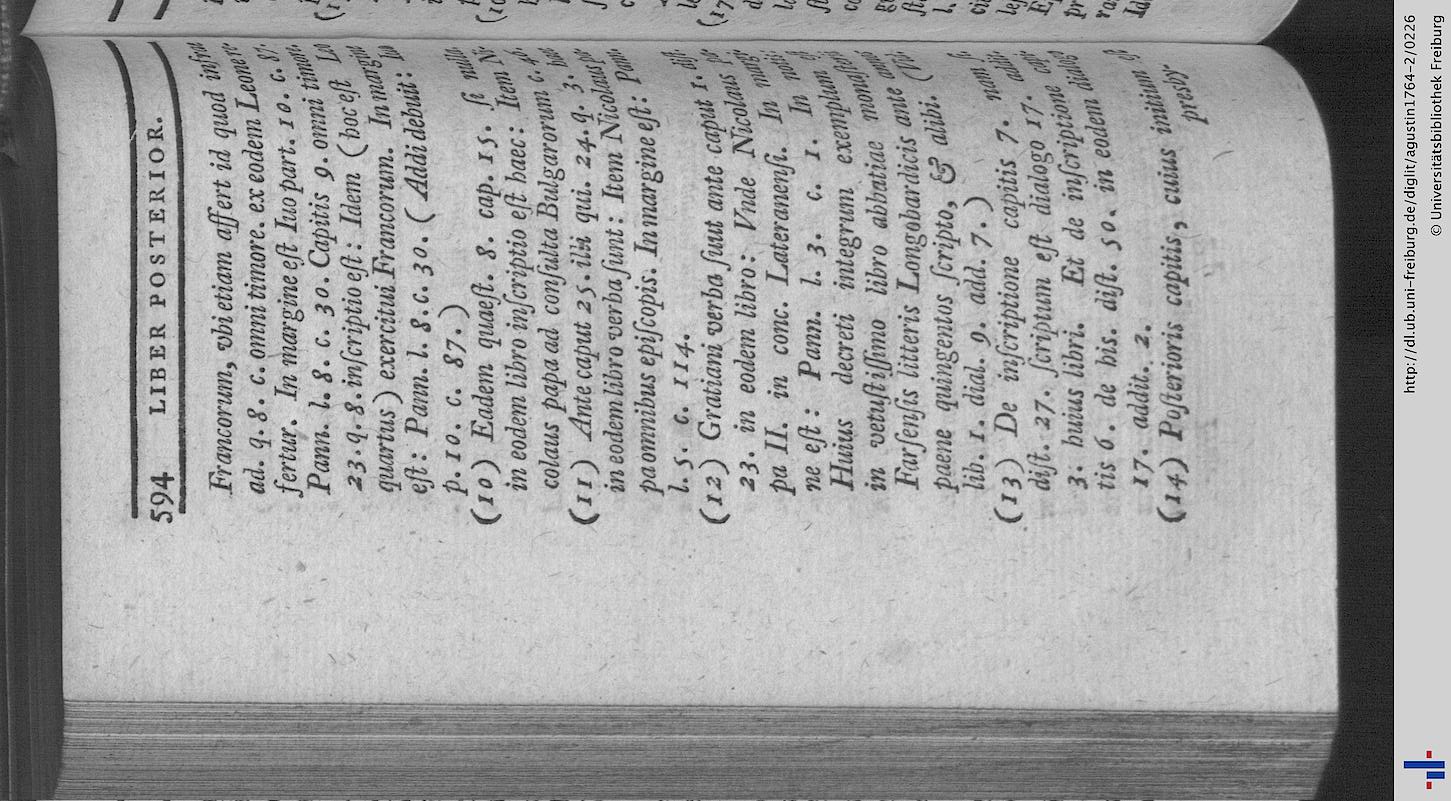 594 LIBER POSTERIOR.
Francorum, vbi etiam affert id quod infra
ad. q. 8. c. omni timore. ex eodem Leone re-
fertur. In margine est Iuo part. 10. c. 87.
Pann. l. 8. c. 30. Capitis 9. omni timor.
23. q. 8. inscriptio est: Idem (hoc est Leo
quartus) exercitui Francorum. In margin
est: Pann. l. 8. c. 30. (Addi debuit: Iuo
p. 10. c. 87.)
(10) Eadem quaest. 8. cap. 15. si nulli
in eodem libro inscriptio est haec: Item Ni-
colaus papa ad consulta Bulgarorum c.
(11) Ante caput 25. illi qui. 24. q. 3.
in eodem libro verba sunt: Item Nicolaus pa-
pa omnibus episcopis. In margine est: Pann.
l. 5. c. 114.
(12) Gratiani verba sunt ante caput 1. dist.
23. in eodem libro: Vnde Nicolaus
pa II. in conc. Lateranensi. In
ne est: Pann. l. 3. c. 1. In
Huius decreti integrum exemplum
in vetustissimo libro abbatiae monasterii
Farsensis litteris Longobardicis ante
paene quingentos scripto, & alibi. (Vi
lib. 1. dial. 9. add. 7.)
(13) De inscriptione capitis 7. nam
dist. 27. scriptum est dialogo 17.
3. huius libri. Et de inscriptione capi-
tis 6. de his. dist. 50. in eodem dialogo
17. addit. 2.
(14) Posterioris capitis, cuius initium
presby-
http://dl.ub.uni-freiburg.de/diglit/agustin1764-2/0226
© Universitätsbibliothek Freiburg